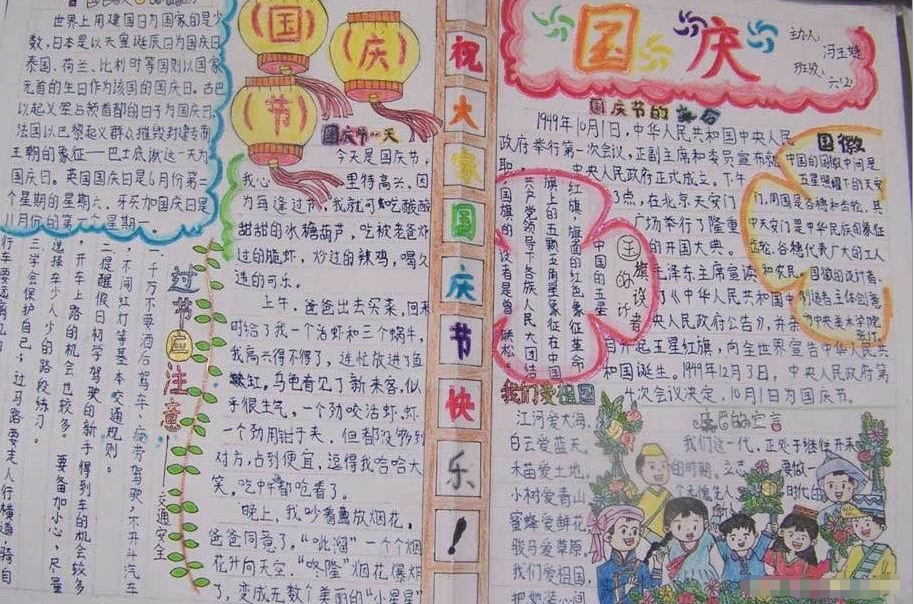 世界上用建国日为国家的是少
数，日本是以天皇诞辰日为国庆日
泰国、荷兰、比利时等国则以国家
元首的生日作为该国的国庆日。古巴
以起义军占领首都的日子为国庆日，
法国以巴黎起义群众摧毁封建专制
王朝的象征——巴士底狱这一天为
国庆日。英国国庆日是6月份第二
个星期的星期六，牙买加国庆日是
11月份的第一个星期一
过节应注意
——交通安全
一、千万不要酒后驾车，疲劳驾驶，不开斗汽车
不闯红灯等基本交通规则。
二、提醒假日初学驾驶的新手得到车的机会较多
，开车上路的机会也较多。要备加小心，尽量
选择车少人少的路段练习。
三、学会保护自己；过马路要走人行横道；骑自
国
庆
节
国庆节一天
今天是国庆节，
我心里特高兴，因
为每逢过节，我就可以吃酸酸
甜甜的冰糖葫芦，吃被老爸炸
过的脆虾，炒过的辣鸡，喝久
违的可乐。
上午，爸爸出去买菜，回来
时给了我一个活虾和三个蜗牛，
我高兴得不得了，连忙放进鱼
缸，乌龟看见了新来客，似
乎很生气，一个劲咬活虾，虾
一个劲用钳子夹，但都没够到
对方，占到便宜，逗得我哈哈大
笑，吃中午都呛着了。
晚上，我吵着要放烟花，
爸爸同意了。“呲溜”一个个烟
花升向天空，“咚隆”烟花爆炸
了，变成无数个美丽的“小星星”
祝大家国庆节快乐！
国庆
主办人：冯玉婕
班级：六(2)
国庆节的
1949年10月1日，中华人民共和国中央人民
政府举行第一次会议，正副主席和委员宣布就
职，中央人民政府正式成立。下午
3点，在北京天安门
广场举行了隆重
的开国大典。
毛泽东主席宣读
了《中华人民共和国中
央人民政府公告》，并亲
自升起五星红旗，向全世界宣告中华人民共
和国诞生。1949年12月3日，中央人民政府第
次会议决定，10月1日为国庆节。
旗的设计者
中国的五星
红旗，旗面的红色象征革命
旗上的五颗五角星象征在中国
共产党领导下各族人民大团结
国旗的设计者是曾联松。
国徽
中国的国徽中间是
五星照耀下的天安
门，周围是谷穗和齿轮，其
中天安门是中华民族的象征
齿轮、谷穗代表广大的工人
和农民。国徽的设计者
中央美术学院
我们爱祖国
江河爱大海，
白云爱蓝天，
禾苗爱土地，
小树爱青山，
蜜蜂爱鲜花，
骏马爱草原。
我们爱祖国，
的宣言
我们这一代，正处于继往开来
的时期。